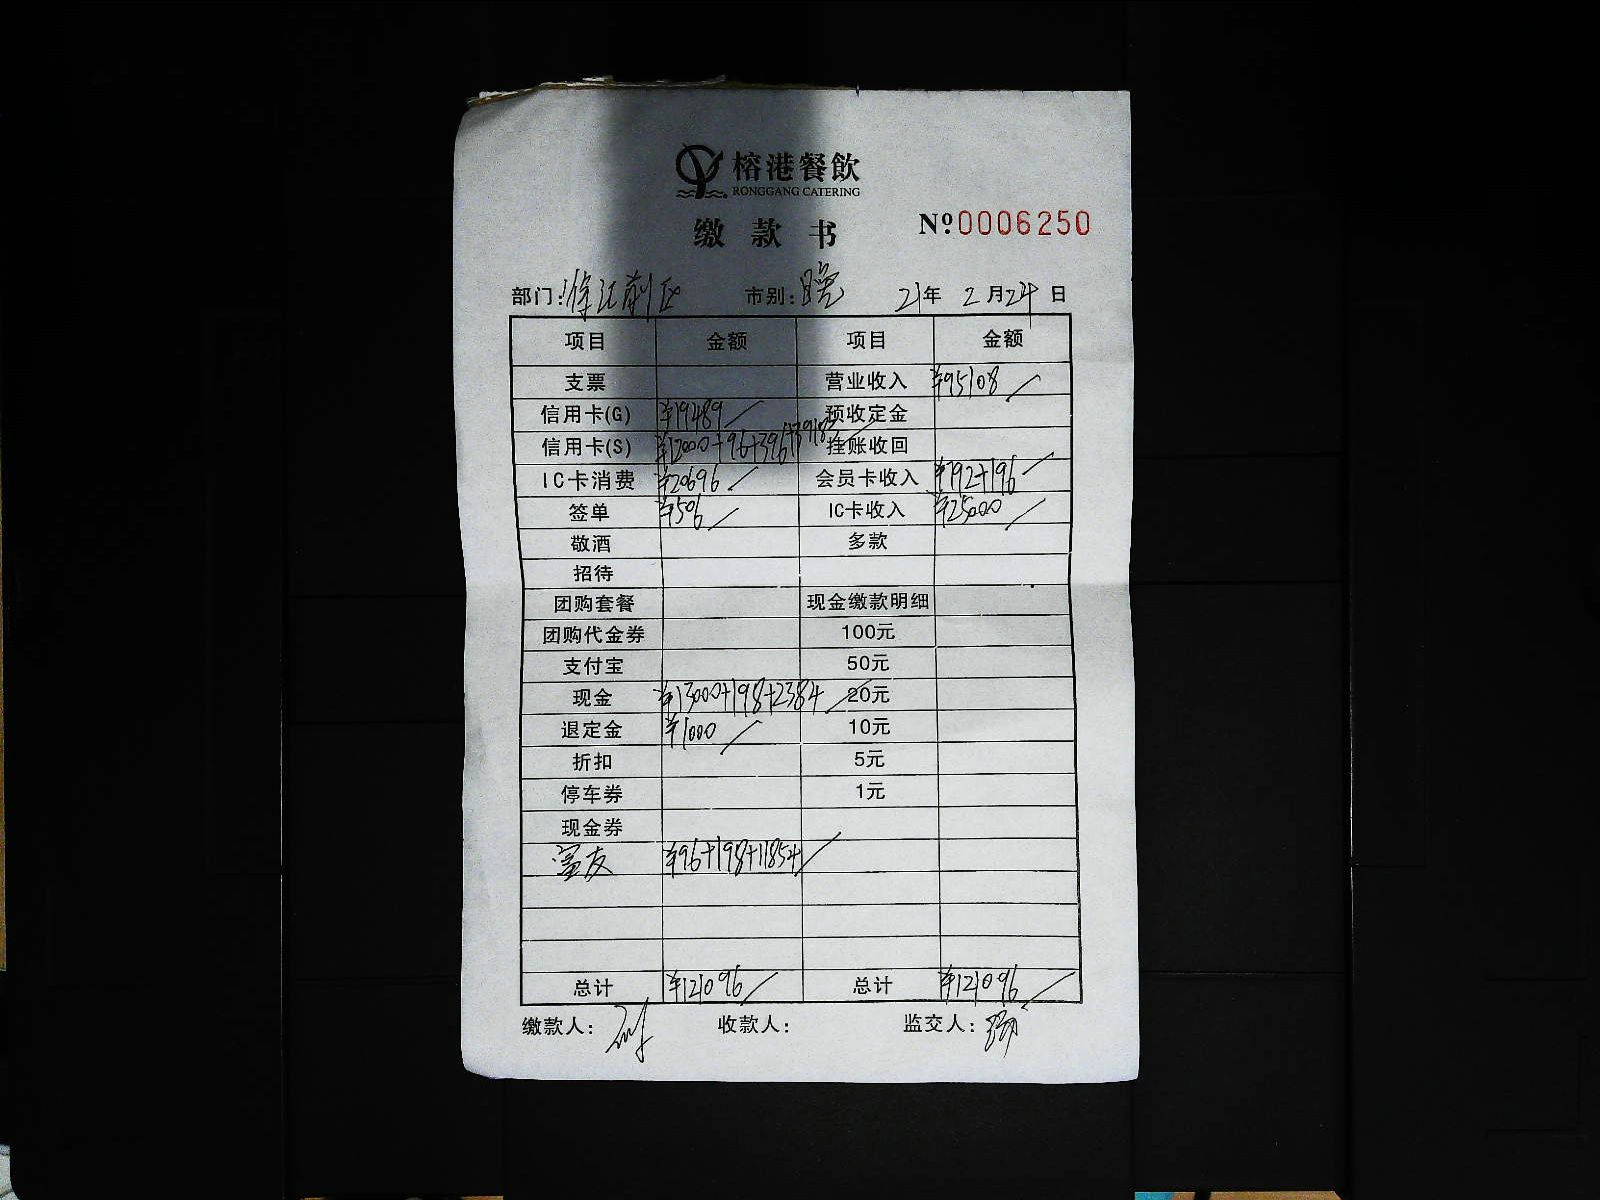 榕港餐飲
RONGGANG CATERING
缴款书
Nº0006250
部门:徐汇前区 市别:晚 21年 2月24日
项目 金额 项目 金额
支票 营业收入 ¥95108
信用卡(G) ¥19489 预收定金
信用卡(S) ¥12000+96+396+39183 挂账收回
IC卡消费 ¥20696 会员卡收入 ¥792+196
签单 ¥506 IC卡收入 ¥25000
敬酒 多款
招待
团购套餐 现金缴款明细
团购代金券 100元
支付宝 50元
现金 ¥13000+198+2384 20元
退定金 ¥1000 10元
折扣 5元
停车券 1元
现金券
¥96+198+11854
总计 ¥121096 总计 ¥121096
缴款人: 收款人: 监交人: